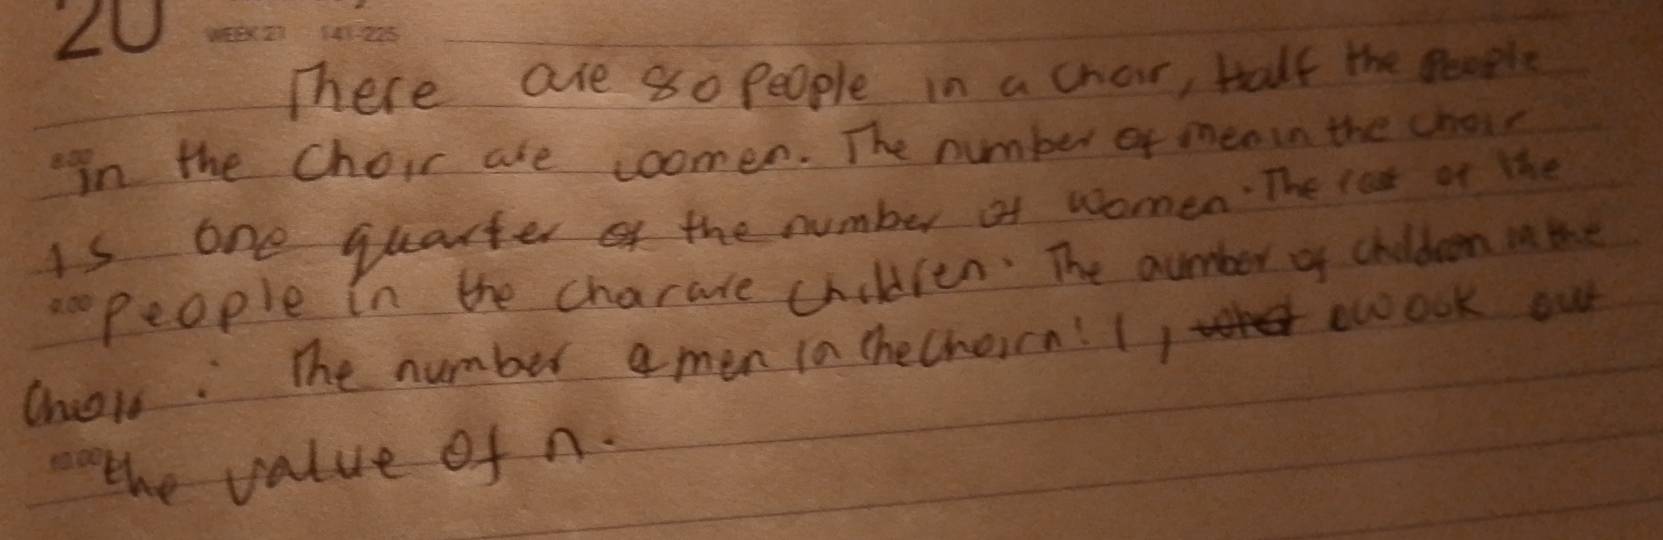 20 WEEK 27 141-225
There are 80 people in a choir, Half the people
8.00 in the choir are women. The number of men in the choir
is one quarter of the number of women. The rest of the
9.00 people in the char are children. The number of children in the
Choir : The number a men in the choir n: 1, work out
10.00 the value of n.